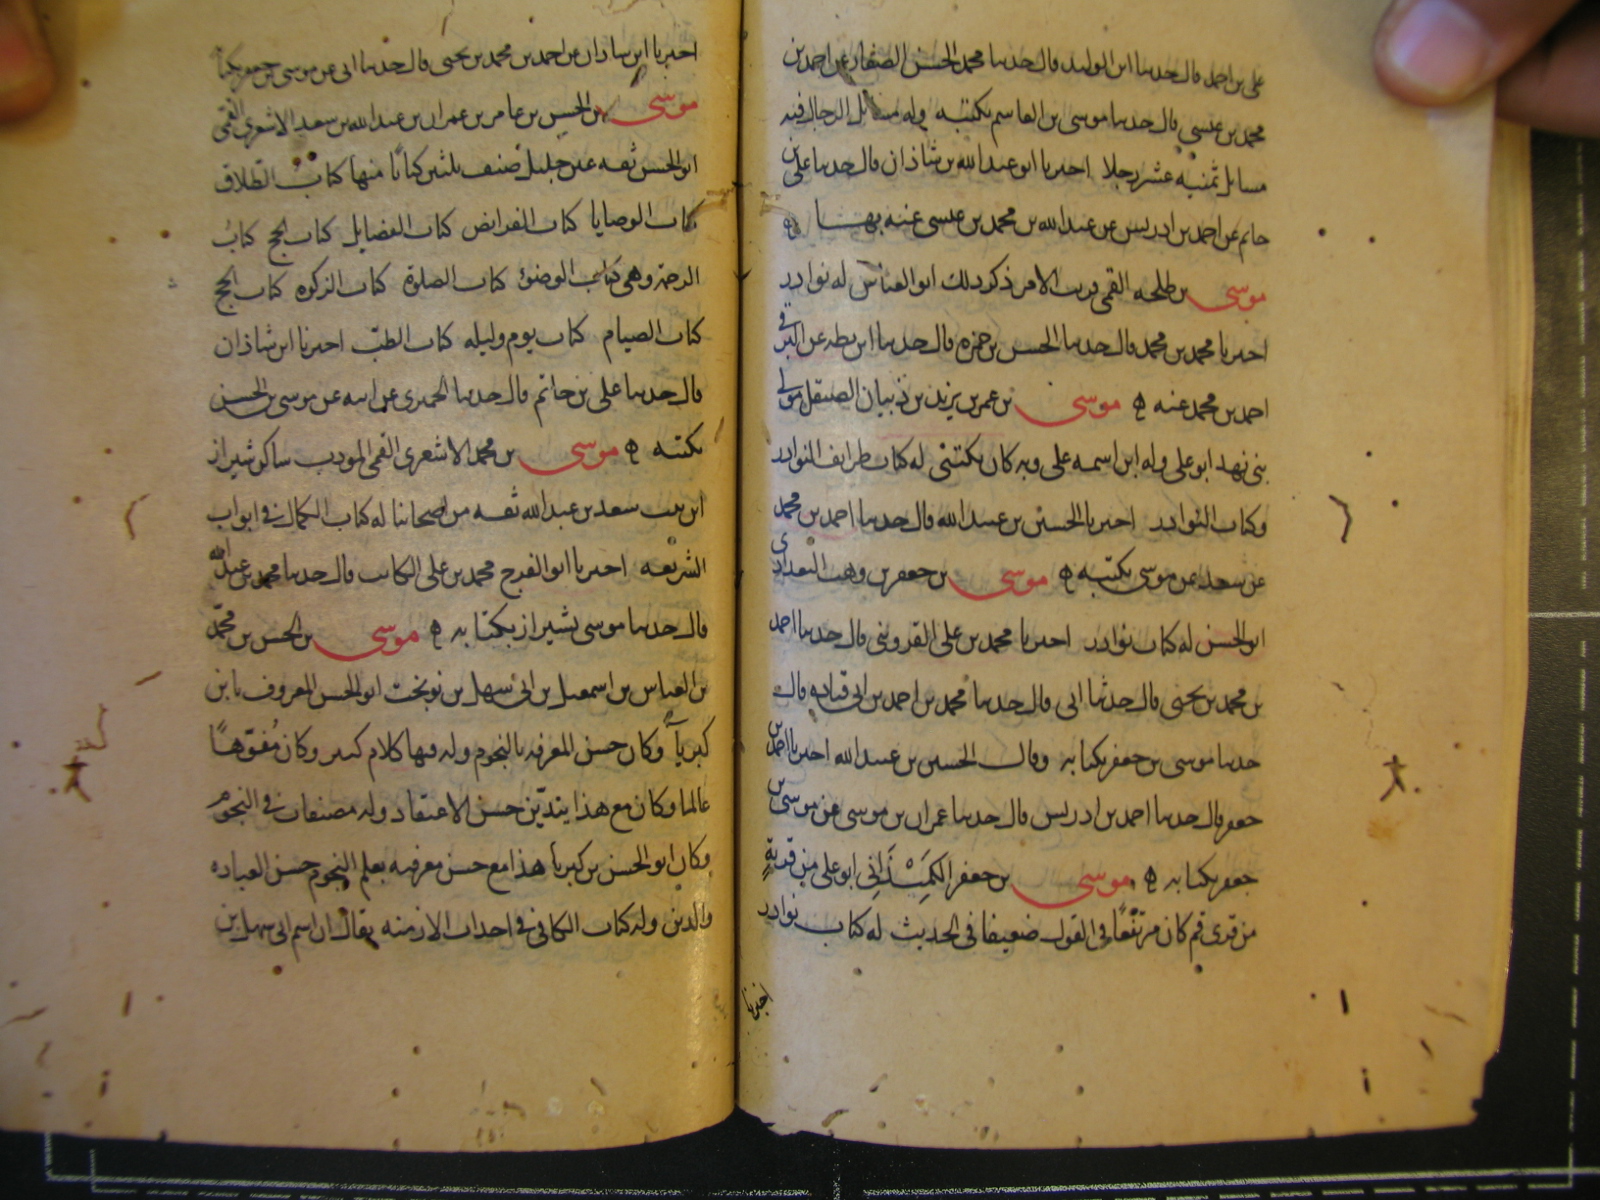 علي بن احمد قال حدثنا ابن الوليد قال حدثنا محمد الحسن الصفار عن احمد بن
محمد بن عيسى قال حدثنا موسى بن القاسم بكتبه وله مسائل الرجال فيه
مسائل ثمنيه عشر رجلا اخبرنا ابو عبد الله بن شاذان قال حدثنا علي بن
حاتم عن احمد بن ادريس عن عبد الله بن محمد بن عيسى عنه بها ه
موسى بن طلحه القمي قريب الامر ذكر ذلك ابو العباس له نوادر
اخبرنا محمد بن محمد قال حدثنا الحسن بن حمزه قال حدثنا ابن بطه عن البرقي
احمد بن محمد عنه ه موسى بن عمر بن يزيد بن ذبيان الصيقل مولى
بني نهد ابو علي وله ابن اسمه علي وبه كان يكتني له كتاب طرايف النوادر
وكتاب النوادر اخبرنا الحسين بن عبيد الله قال حدثنا احمد بن محمد
عن سعد عن موسى بكتبه ه موسى بن جعفر بن وهب البغدادي
ابو الحسن له كتاب نوادر اخبرنا محمد بن علي القزويني قال حدثنا احمد
بن محمد بن يحيى قال حدثنا ابي قال حدثنا محمد بن احمد بن ابي قتاده قال
حدثنا موسى بن جعفر بكتابه وقال الحسين بن عبيد الله اخبرنا احمد بن
جعفر قال حدثنا احمد بن ادريس قال حدثنا عمران بن موسى عن موسى بن
جعفر بكتابه ه موسى بن جعفر الكميذاني ابو علي من قرية
من قرى قم كان مرتفعا في القول ضعيفا في الحديث له كتاب نوادر
اخبرنا
اخبرنا ابن شاذان عن احمد بن محمد بن يحيى قال حدثنا ابي عن موسى بن جعفر بكتابه
موسى بن الحسن بن عامر بن عمران بن عبد الله بن سعد الاشعري القمي
ابو الحسن ثقه عين جليل صنف ثلثين كتابا منها كتاب الطلاق
كتاب الوصايا كتاب الفرائض كتاب الفضايل كتاب الحج كتاب
الرحمة وهي كتاب الوضوء كتاب الصلوة كتاب الزكوه كتاب الحج
كتاب الصيام كتاب يوم وليله كتاب الطب اخبرنا ابن شاذان
قال حدثنا علي بن حاتم قال حدثنا الحميري عن ابيه عن موسى بن الحسن
بكتبه ه موسى بن محمد الاشعري القمي المودب ساكن شيراز
ابن بنت سعد بن عبد الله ثقه من اصحابنا له كتاب الكمال في ابواب
الشريعه اخبرنا ابو الفرج محمد بن علي الكاتب قال حدثنا محمد بن عبد الله
قال حدثنا موسى بشيراز بكتابه ه موسى بن الحسن بن محمد
بن العباس بن اسمعيل بن ابي سهل بن نوبخت ابو الحسن المعروف بابن
كبرياء وكان حسن المعرفه بالنجوم وله فيها كلام كثير وكان مفوها
عالما وكان مع هذا يتدين حسن الاعتقاد وله مصنفات في النجوم
وكان ابو الحسن بن كبريا هذا مع حسن معرفته بعلم النجوم حسن العباده
والدين وله كتاب الكافي في احداث الازمنه يقال ان اسم ابي سهل بن